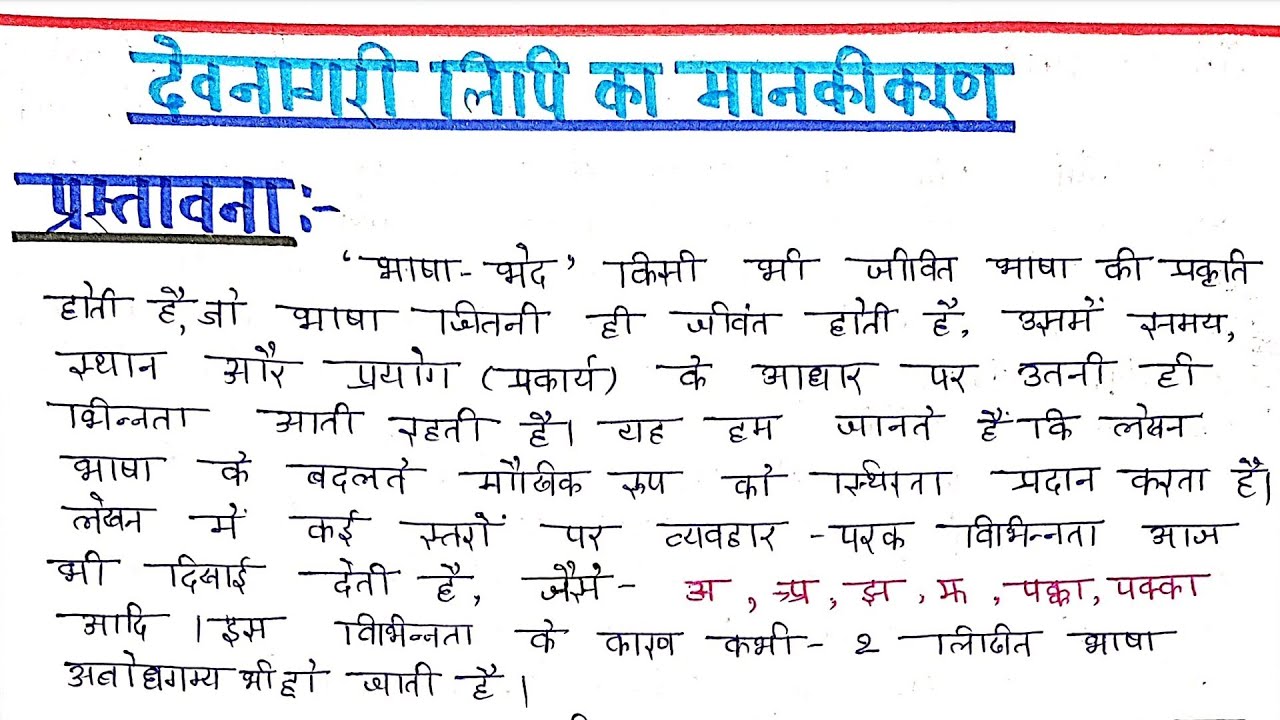 देवनागरी लिपि का मानकीकरण
प्रस्तावना :-
‘भाषा - भेद’ किसी भी जीवित भाषा की प्रकृति
होती है, जो भाषा जितनी ही जीवंत होती है, उसमें समय,
स्थान और प्रयोग (प्रकार्य) के आधार पर उतनी ही
भिन्नता आती रहती है। यह हम जानते हैं कि लेखन
भाषा के बदलते मौखिक रूप को स्थिरता प्रदान करता है।
लेखन में कई स्तरों पर व्यवहार - परक विभिन्नता आज
भी दिखाई देती है, जैसे - अ , , झ , , पक्का, पक्का
आदि । इस विभिन्नता के कारण कभी - 2 लिखीत भाषा
अबोधगम्य भी हो जाती है ।